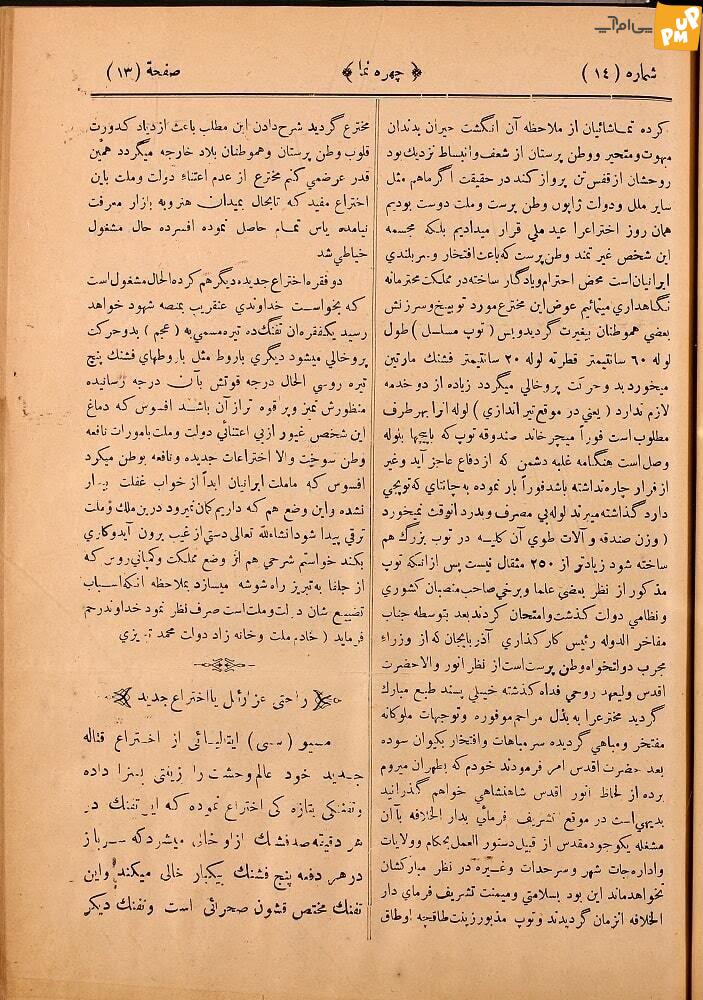 پی‌ام‌آپ
PMUP
شماره (۱٤)
﴿ چهره نما ﴾
صفحة (۱۳)
کرده تماشائیان از ملاحظه آن انگشت حیران بدندان
مبهوت و متحیر و وطن پرستان از شعف و انبساط نزدیك بود
روحشان از قفس تن پرواز کند در حقیقت اگر ماهم مثل
سایر ملل و دولت ژاپون وطن پرست و ملت دوست بودیم
همان روز اختراعرا عید ملی قرار میدادیم بلکه مجسمه
این شخص غیرتمند وطن پرست که باعث افتخار و سربلندی
ایرانیان است محض احترام و یادگار ساخته در مملکت محترمانه
نگاهداری مینمائیم عوض این مخترع مورد توبیخ و سرزنش
بعضی هموطنان بیغیرت گردید و پس (توپ مسلسل) طول
لوله ٦٠ سانتیمتر قطر ته لوله ٢٠ سانتیمتر فشنك مارتین
میخورد بد و حرکت پر و خالی میگردد زیاده از دو خدمه
لازم ندارد (یعنی در موقع تیراندازی) لوله انرا بهر طرف
مطلوب است فوراً میچرخاند صندوقه توپ که باپیچها بلوله
وصل است هنگامه غلبه دشمن که از دفاع عاجز آید و غیر
از فرار چاره نداشته باشد فوراً باز نموده به چانتای که توپچی
دارد گذاشته میبرند لوله بی مصرف و بدرد آنوقت نمیخورد
(وزن صندقه و آلات طوی آن کلیه در توپ بزرك هم
ساخته شود زیادتر از ۲۵۰ مثقال نیست پس از انکه توپ
مذکور از نظر بعضی علما و برخی صاحب منصبان کشوری
و نظامی دولت گذشت و امتحان کردند بعد بتوسطه جناب
مفاخر الدوله رئیس کارگذاری آذربایجان که از وزراء
مجرب دولتخواه وطن پرست است از نظر انور والاحضرت
اقدس ولیعهد روحی فداه گذشته خیلی پسند طبع مبارك
گردید مخترعرا به بذل مراحم موفوره و توجهات ملوکانه
مفتخر و مباهی گردیده سر مباهات و افتخار بکیوان سوده
بعد حضرت اقدس امر فرمودند خودم که بطهران میروم
برده از لحاظ انور اقدس شاهنشاهی خواهم گذرانید
بدیهی است در موقع تشریف فرمائی بدار الخلافه باآن
مشغله یکوجود مقدس از قبیل دستور العمل بحکام و ولایات
و اداره جات شهر و سرحدات و غیره در نظر مبارکشان
نخواهد ماند این بود بسلامتی و میمنت تشریف فرمای دار
الخلافه انزمان گردیدند و توپ مذبور زینت طاقچه اوطاق
مخترع گردید شرح دادن این مطلب باعث ازدیاد کدورت
قلوب وطن پرستان و هموطنان بلاد خارجه میگردد همین
قدر عرض می کنم مخترع از عدم اعتناء دولت و ملت باین
اختراع مفید که تابحال بمیدان هنر و به بازار معرفت
نیامده یاس تمام حاصل نموده افسرده حال مشغول
خیاطی شد
دو فقره اختراع جدیده دیگر هم کرده الحال مشغول است
که بخواست خداوندی عنقریب بمنصه شهود خواهد
رسید یکفقره ان تفنك ده تیره مسمی به (عجم) بدو حرکت
پر و خالی میشود دیگری باروط مثل باروطهای فشنك پنج
تیره روسی الحال درجه قوتش بآن درجه رسانیده
منظورش تمیز و پر قوه تر از آن باشد افسوس که دماغ
این شخص غیور از بی اعتنائی دولت و ملت بامورات نافعه
وطن سوخت والا اختراعات جدیده و نافعه بوطن میکرد
افسوس که ماملت ایرانیان ابداً از خواب غفلت بیدار
نشده و این وضع هم که داریم کمان نمیرود در بن ملك و ملت
ترقی پیدا شود انشاءلله تعالی دستی از غیب برون آید و کاری
بکند خواستم شرحی هم از وضع مملکت و کمپانی روس که
از جلفا به تبریز راه شوشه میسازد بملاحظه انکه اسباب
تضییع شان دولت و ملت است صرف نظر نمود خداوند رحم
فرماید (خادم ملت و خانه زاد دولت محمد تبریزی
راحتی عزرائل یا اختراع جدید
مسیو (سی) ایتالیائی از اختراع قتاله
جدید خود عالم وحشت را زینتی بسزا داده
و تفنگی بتازه کی اختراع نموده که این تفنك در
هر دقیقه صد فشنك از او خالی میشرد که سرباز
در هر دفعه پنج فشنك بیکبار خالی میکند و این
تفنك مختص قشون صحرائی است و تفنك دیگر